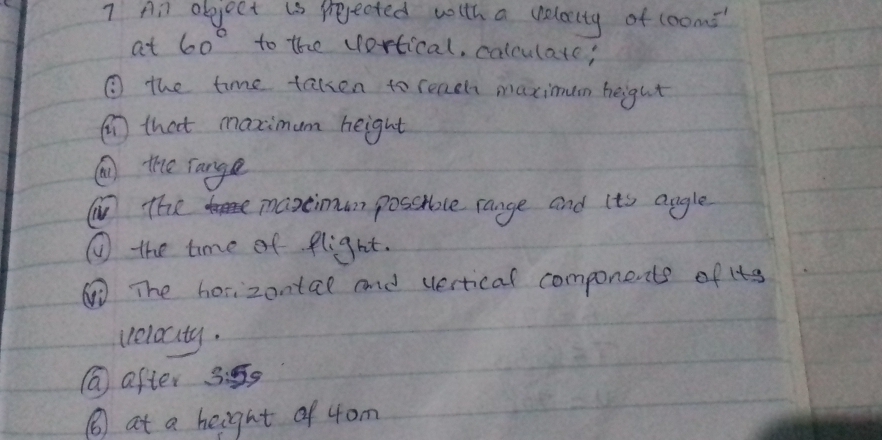 7 An object is projected with a velocity of 100ms⁻¹
at 60° to the vertical. calculate;
(i) the time taken to reach maximum height
(ii) that maximum height
(iii) the range
(iv) the maximum possible range and its angle
(v) the time of flight.
(vi) The horizontal and vertical components of its
velocity.
(a) after 3.5s
(b) at a height of 40m